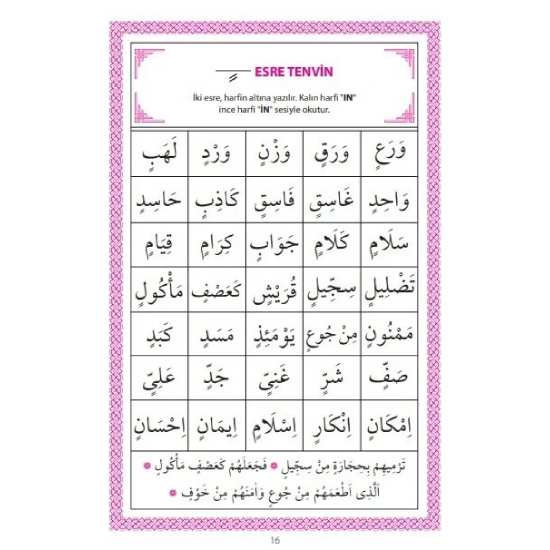 ESRE TENVİN
İki esre, harfin altına yazılır. Kalın harfi "IN"
ince harfi "İN" sesiyle okutur.
وَرَعٍ وَرَقٍ وَزْنٍ وَرْدٍ لَهَبٍ
وَاحِدٍ غَاسِقٍ فَاسِقٍ كَاذِبٍ حَاسِدٍ
سَلَامٍ كَلَامٍ جَوَابٍ كِرَامٍ قِيَامٍ
تَضْلِيلٍ سِجِّيلٍ قُرَيْشٍ كَعَصْفٍ مَأْكُولٍ
مَمْنُونٍ مِنْ جُوعٍ يَوْمَئِذٍ مَسَدٍ كَبَدٍ
صَفٍّ شَرٍّ غَنِيٍّ جَدٍّ عَلِيٍّ
اِمْكَانٍ اِنْكَارٍ اِسْلَامٍ اِيمَانٍ اِحْسَانٍ
تَرْمِيهِمْ بِحِجَارَةٍ مِنْ سِجِّيلٍ فَجَعَلَهُمْ كَعَصْفٍ مَأْكُولٍ
اَلَّذِى اَطْعَمَهُمْ مِنْ جُوعٍ وَاٰمَنَهُمْ مِنْ خَوْفٍ
16